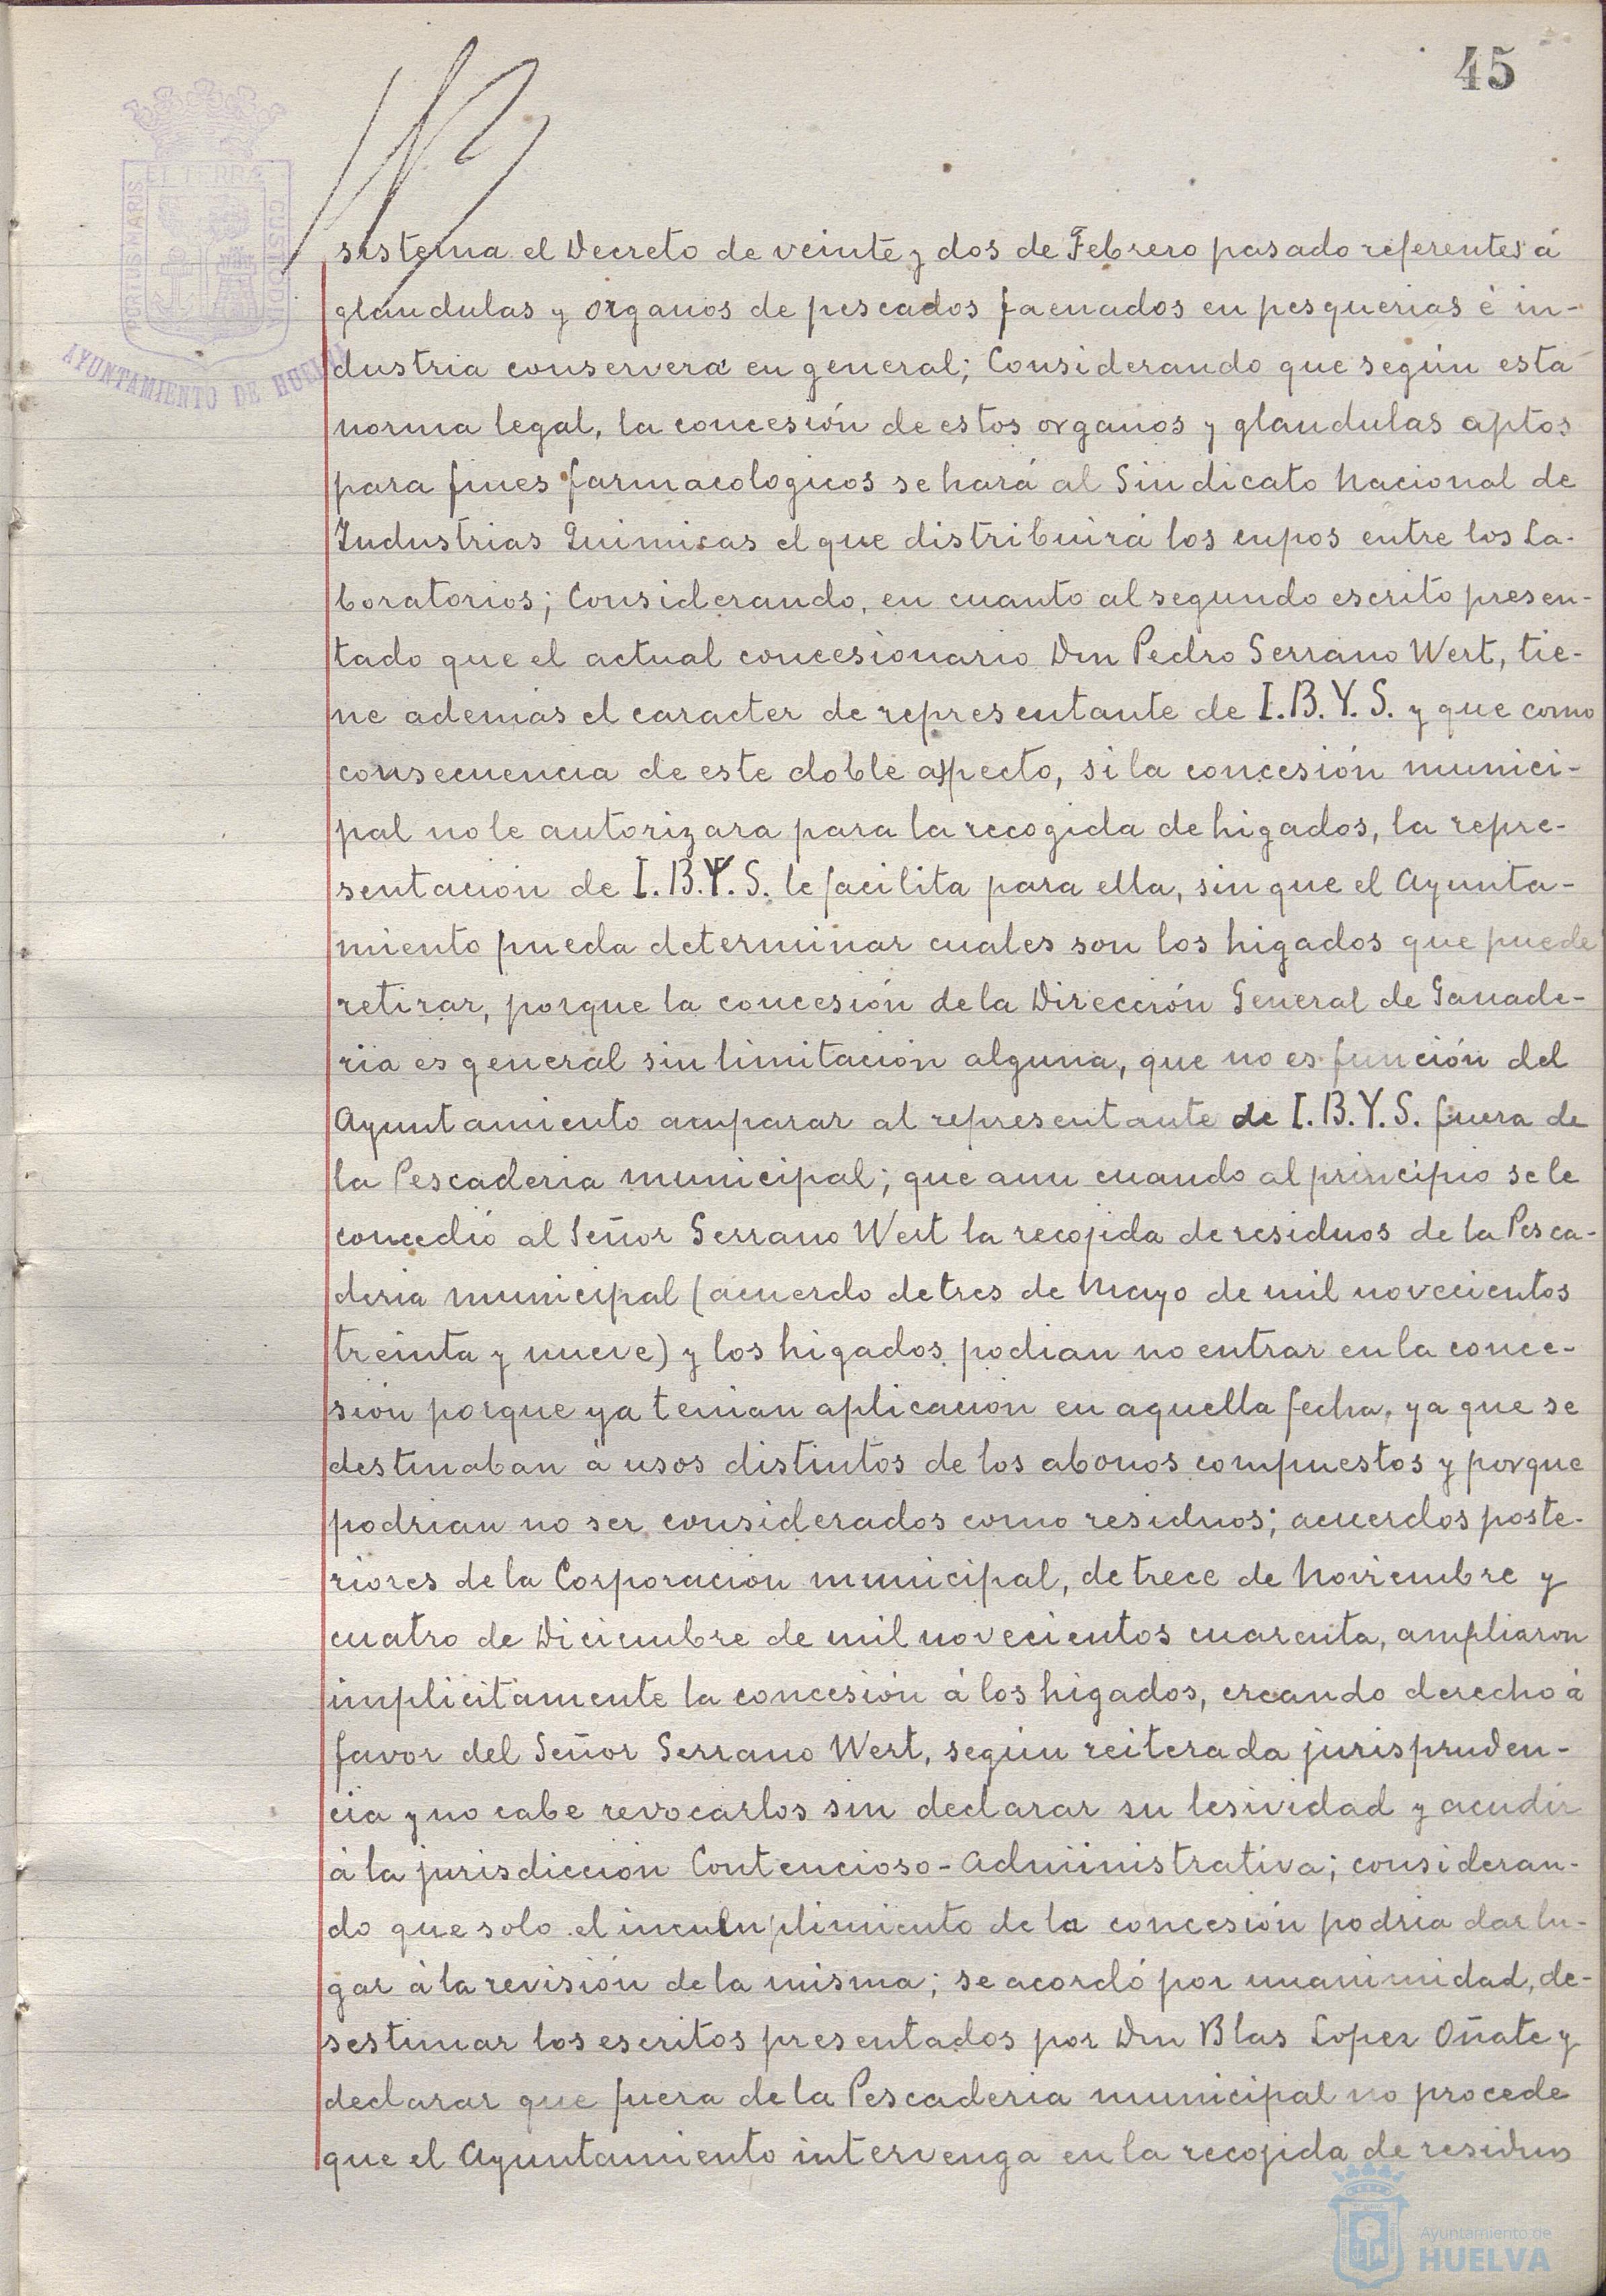 45
ET TERRE
PORTUS MARIS
CUSTODIA
AYUNTAMIENTO DE HUELVA
sistema el Decreto de veinte y dos de Febrero pasado referentes á
glandulas y organos de pescados faenados en pesquerias é in-
dustria conservera en general; Considerando que según esta
norma legal, la concesión de estos organos y glandulas aptos
para fines farmacologicos se hará al Sindicato Nacional de
Industrias Quimicas el que distribuirá los cupos entre los La-
boratorios; Considerando, en cuanto al segundo escrito presen-
tado que el actual concesionario Don Pedro Serrano Wert, tie-
ne ademas el caracter de representante de I.B.Y.S. y que como
consecuencia de este doble aspecto, si la concesión munici-
pal no le autorizara para la recogida de higados, la repre-
sentacion de I.B.Y.S. le facilita para ella, sin que el Ayunta-
miento pueda determinar cuales son los higados que puede
retirar, porque la concesión de la Dirección General de Ganade-
ria es general sin limitacion alguna, que no es función del
Ayuntamiento amparar al representante de I.B.Y.S. fuera de
la Pescaderia municipal; que aun cuando al principio se le
concedió al Señor Serrano Wert la recojida de residuos de la Pesca-
deria municipal (acuerdo de tres de Mayo de mil novecientos
treinta y nueve) y los higados podian no entrar en la conce-
sión porque ya tenian aplicacion en aquella fecha, ya que se
destinaban á usos distintos de los abonos compuestos y porque
podrian no ser considerados como residuos; acuerdos poste-
riores de la Corporacion municipal, de trece de Noviembre y
cuatro de Diciembre de mil novecientos cuarenta, ampliaron
implicitamente la concesión á los higados, creando derecho á
favor del Señor Serrano Wert, según reiterada jurispruden-
cia y no cabe revocarlos sin declarar su lesividad y acudir
á la jurisdiccion Contencioso-Administrativa; consideran-
do que solo el incumplimiento de la concesión podria dar lu-
gar á la revisión de la misma; se acordó por unanimidad, de-
sestimar los escritos presentados por Don Blas Lopez Oñate y
declarar que fuera de la Pescaderia municipal no procede
que el Ayuntamiento intervenga en la recojida de residuos
Ayuntamiento de
HUELVA